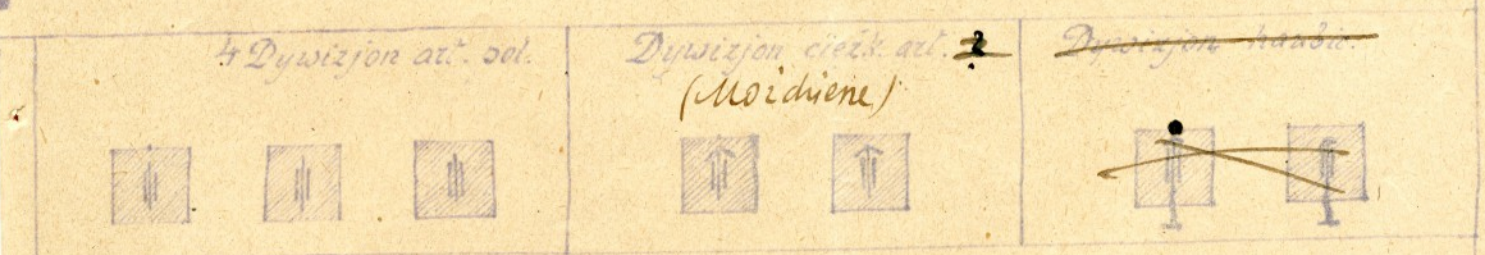 4 Dywizjon art. pol.
Dywizjon ciężk. art.
(Moździerze)
Dywizjon haubic.